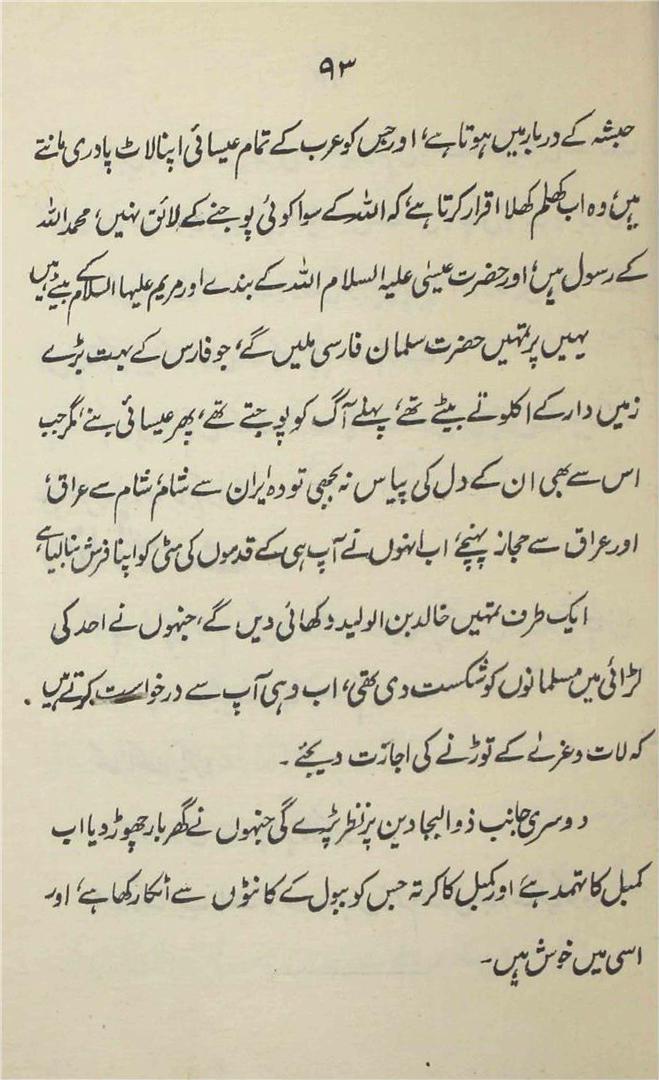 ۹۳
حبشہ کے دربار میں ہوتا ہے، اور جس کو عرب کے تمام عیسائی اپنا لاٹ پادری مانتے
ہیں، وہ اب کھلم کھلا اقرار کرتا ہے، کہ اللہ کے سوا کوئی پوجنے کے لائق نہیں، محمد اللہ
کے رسول ہیں، اور حضرت عیسیٰ علیہ السلام اللہ کے بندے اور مریم علیہا السلام کے بیٹے ہیں
یہیں پر تمہیں حضرت سلمان فارسی ملیں گے، جو فارس کے بہت بڑے
زمیں دار کے اکلوتے بیٹے تھے، پہلے آگ کو پوجتے تھے، پھر عیسائی بنے، مگر جب
اس سے بھی ان کے دل کی پیاس نہ بجھی تو وہ ایران سے شام، شام سے عراق،
اور عراق سے حجاز پہنچے، اب انہوں نے آپ ہی کے قدموں کی مٹی کو اپنا فرش بنا لیا ہے،
ایک طرف تمہیں خالد بن الولید دکھائی دیں گے، جنہوں نے احد کی
لڑائی میں مسلمانوں کو شکست دی تھی، اب وہی آپ سے درخواست کرتے ہیں
کہ لات و عزیٰ کے توڑنے کی اجازت دیجئے۔
دوسری جانب ذو البجادین پر نظر پڑے گی جنہوں نے گھر بار چھوڑ دیا اب
کمبل کا تہمد ہے، اور کمبل کا کرتہ جس کو ببول کے کانٹوں سے اٹکا رکھا ہے، اور
اسی میں خوش ہیں۔